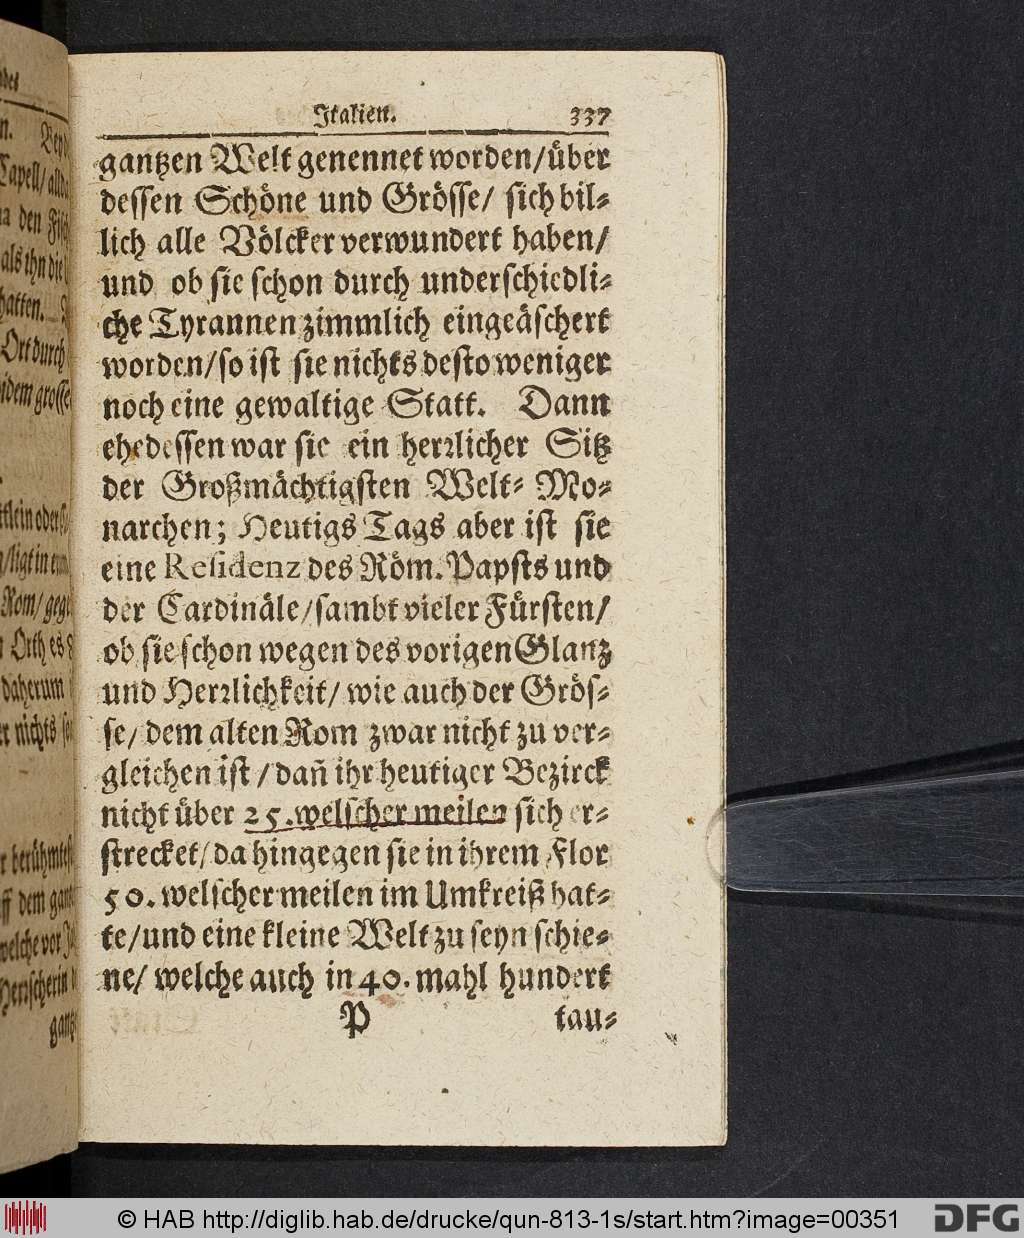 Italien. 337
gantzen Welt genennet worden/über
dessen Schöne und Grösse/ sich bil-
lich alle Völcker verwundert haben/
und ob sie schon durch underschiedli-
che Tyrannen zimmlich eingeäschert
worden/so ist sie nichts desto weniger
noch eine gewaltige Statt. Dann
ehedessen war sie ein herrlicher Sitz
der Großmächtigsten Welt- Mo-
narchen; Heutigs Tags aber ist sie
eine Residenz des Röm. Papsts und
der Cardinäle/sambt vieler Fürsten/
ob sie schon wegen des vorigen Glantz
und Herrlichkeit/ wie auch der Grös-
se/ dem alten Rom zwar nicht zu ver-
gleichen ist/dañ ihr heutiger Bezirck
nicht über 25. welscher meilen sich er-
strecket/da hingegen sie in ihrem Flor
50. welscher meilen im Umkreiß hat-
te/und eine kleine Welt zu seyn schie-
ne/ welche auch in 40. mahl hundert
P tau-
als ihn die
hatten.
Ort durch
dem grosse
klein oder
ligt in
Rom/
Orth es
daherum
nichts
berühmte
dem
welche vor
gantz
© HAB http://diglib.hab.de/drucke/qun-813-1s/start.htm?image=00351
DFG